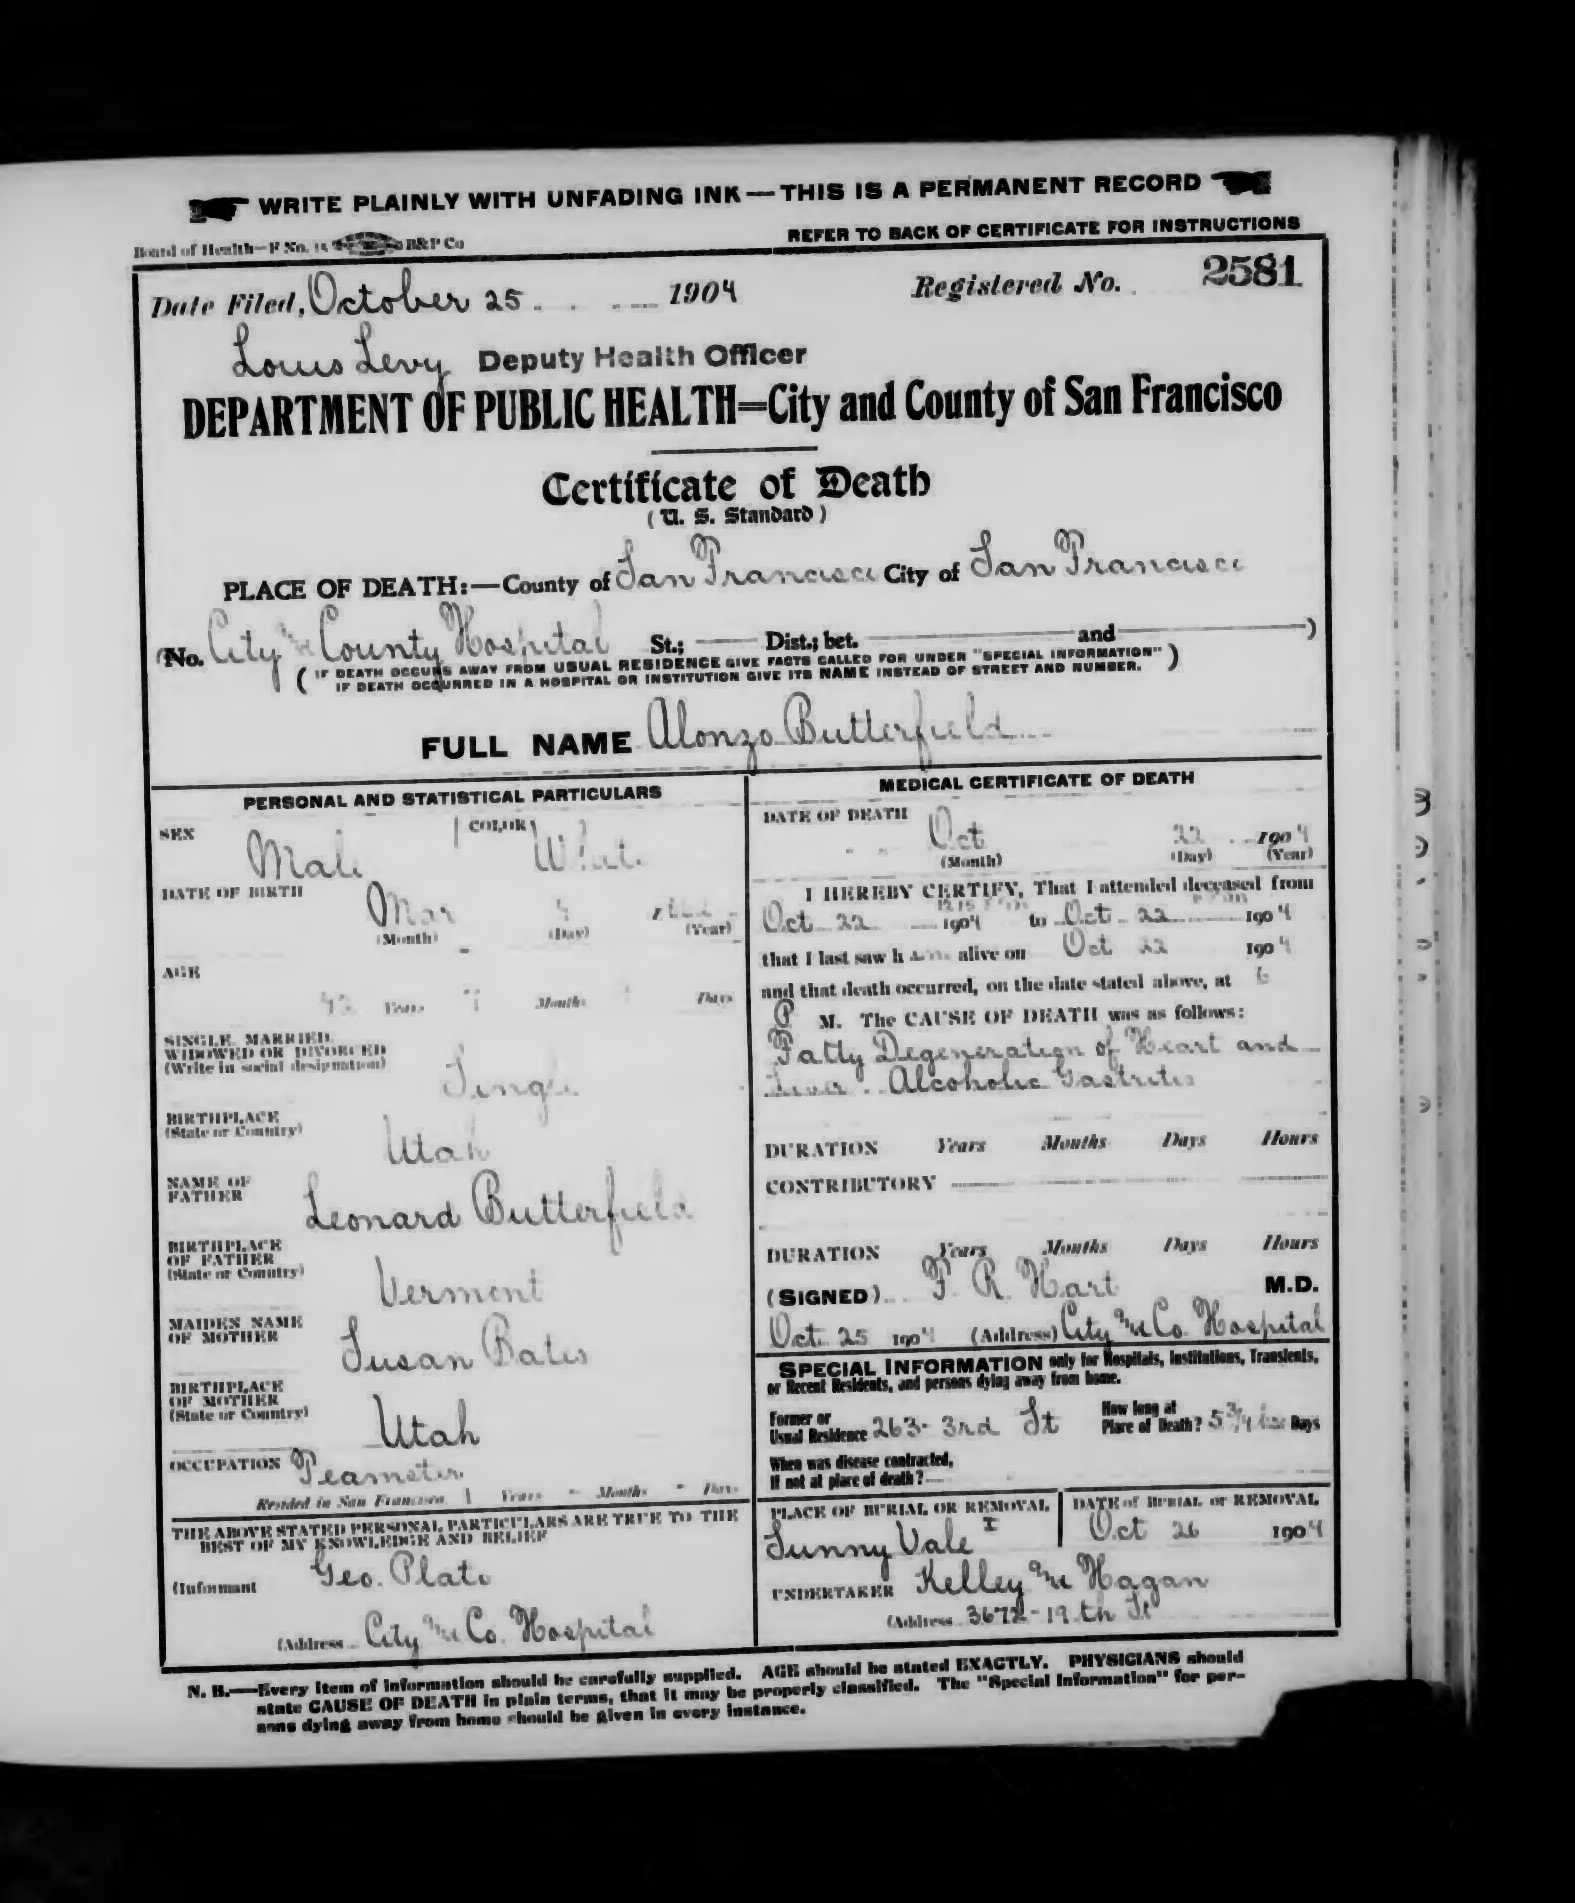 WRITE PLAINLY WITH UNFADING INK — THIS IS A PERMANENT RECORD
Board of Health—F No. 15 B&P Co
REFER TO BACK OF CERTIFICATE FOR INSTRUCTIONS
Date Filed, October 25 1904 Registered No. 2581
Louis Levy Deputy Health Officer
DEPARTMENT OF PUBLIC HEALTH=City and County of San Francisco
Certificate of Death
(U. S. Standard)
PLACE OF DEATH:—County of San Francisco City of San Francisco
(No. City and County Hospital St.; Dist.; bet. and )
( IF DEATH OCCURS AWAY FROM USUAL RESIDENCE GIVE FACTS CALLED FOR UNDER "SPECIAL INFORMATION" )
IF DEATH OCCURRED IN A HOSPITAL OR INSTITUTION GIVE ITS NAME INSTEAD OF STREET AND NUMBER.
FULL NAME Alonzo Butterfield
PERSONAL AND STATISTICAL PARTICULARS
SEX Male COLOR White
DATE OF BIRTH Mar 1
(Month) (Day) (Year)
AGE
Years 7 Months Days
SINGLE, MARRIED,
WIDOWED OR DIVORCED
(Write in social designation) Single
BIRTHPLACE
(State or Country) Utah
NAME OF
FATHER Leonard Butterfield
BIRTHPLACE
OF FATHER
(State or Country) Vermont
MAIDEN NAME
OF MOTHER Susan Bates
BIRTHPLACE
OF MOTHER
(State or Country) Utah
OCCUPATION Teamster
Resided in San Francisco 1 Years - Months - Days
THE ABOVE STATED PERSONAL PARTICULARS ARE TRUE TO THE
BEST OF MY KNOWLEDGE AND BELIEF
(Informant Geo. Plate
(Address City and Co. Hospital
MEDICAL CERTIFICATE OF DEATH
DATE OF DEATH Oct 22 1904
(Month) (Day) (Year)
I HEREBY CERTIFY, That I attended deceased from
12 15
Oct 22 1904 to Oct 22 1904
that I last saw h im alive on Oct 22 1904
and that death occurred, on the date stated above, at 6
P M. The CAUSE OF DEATH was as follows:
Fatty Degeneration of Heart and
Liver. Alcoholic Gastritis
DURATION Years Months Days Hours
CONTRIBUTORY
DURATION Years Months Days Hours
(SIGNED) F. R. Hart M.D.
Oct. 25 1904 (Address) City and Co. Hospital
SPECIAL INFORMATION only for Hospitals, Institutions, Transients,
or Recent Residents, and persons dying away from home.
Former or
Usual Residence 263- 3rd St
How long at
Place of Death? 5 3/4 hrs Days
When was disease contracted,
If not at place of death?
PLACE OF BURIAL OR REMOVAL DATE of BURIAL or REMOVAL
Sunny Vale I Oct 26 1904
UNDERTAKER Kelley and Hagan
(Address 3672- 19th St
N. B.—Every item of information should be carefully supplied. AGE should be stated EXACTLY. PHYSICIANS should
state CAUSE OF DEATH in plain terms, that it may be properly classified. The "Special Information" for per-
sons dying away from home should be given in every instance.